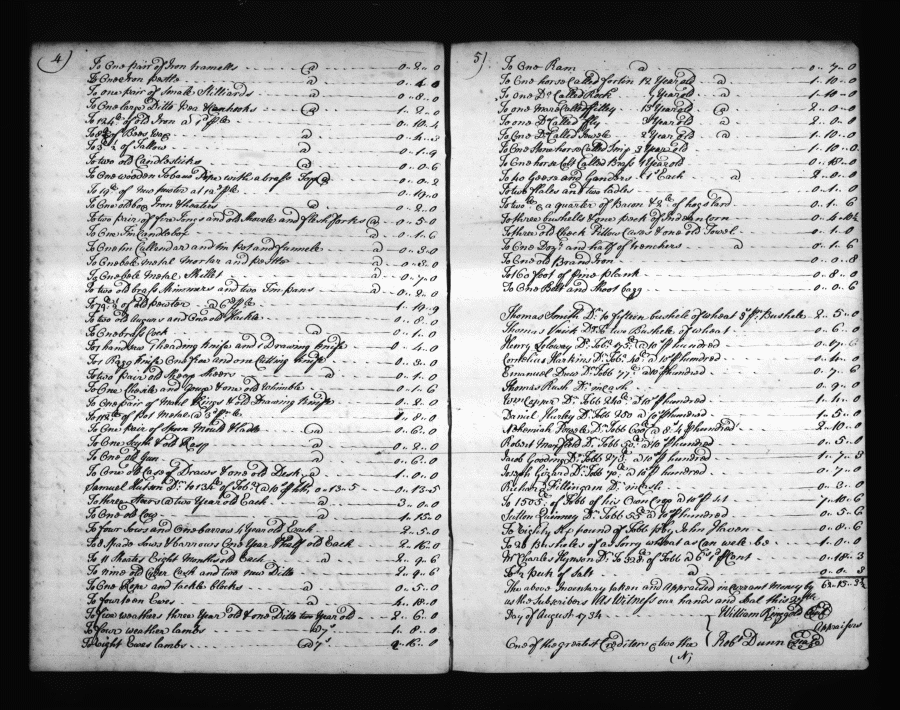 4)
To One pair of Iron tramells @ 0..2..0
To One Iron pestle 0..4..0
To one pair of Small Stilliards @ 0..8..0
To One large Ditto 1..2..0
of old Iron at 0..10..4
of Bees Wax @
of Tallow @ 0..1..9
To two old Candlesticks @ 0..0..6
To One wooden Tobacco Pipe with a brass 0..0..2
To 19 lb of new pewter at 12 d pr lb 0..19..0
To One old box Iron & heaters @ 0..2..0
To two pair of fire Tongs and old Shovele and flesh forks @ 0..5..0
To One Tin Candlebox @ 0..1..6
To One tin Callendar and tin pot and funnele @ 0..3..0
To One bele metal Mortar and pestle @ 0..8..0
To One bele Metal Skillet @ 0..7..0
To two old brass Skimmers and two Tin pans @ 0..2..0
of old pewter @ 1..19..9
To two old Augurs and One old 0..8..0
To One brass Cock 0..1..0
Heading Knife and 1 Drawing Knife 0..4..0
Knife One fro and one Cutting Knife 0..3..0
To two pair old Sheep Sheers @ 0..1..0
To One Chisele and Gouge & one old Whimble 0..1..6
To One pair of Maul Rings & Old Drawing Knife 0..2..0
of pot Metal @ 1..8..0
To One pair of Spoon Moulds & ladle @ 0..6..0
To One Scyth & old Rasp @ 0..2..0
To One old Gun 0..6..0
To One old Case of Draws & one old Desk @ 1..0..0
Samuel 0..13..5
To three Steers @ two Year old Each @ 3..0..0
To One old Cow @ 1..15..0
To four Sows and One barrow 4 Year old Each 2..5..0
To 8 Spade Sows & barrows One Year & half old Each 2..16..0
To 11 Shoates Eight Months old Each @ 2..9..6
To nine old Cyder Cask and two new Ditto 2..9..6
To One Rope and tackle blocks @ 0..5..0
To fourteen Ewes @ 4..18..0
To five weathers three Year old & one Ditto two Year old 2..6..0
To four weather lambs @ 7s 1..8..0
To eight Ewes lambs @ 7s 2..16..0
5)
To One Ram @ 0..7..0
To One horse Called fortin 12 Year old @ 1..10..0
To one Do Called Rock Year old @ 1..10..0
To one mare Called filley 13 Year old @ 2..0..0
To one Do Called 3 Year old @ 2..0..0
To One Do Called Jewele 2 Year old @ 1..10..0
To One Stone horse Called 3 Year old 1..10..0
To One horse Colt Called Brass 1 Year old 0..18..0
To 40 Geese and Ganders 1s Each @ 2..0..0
To two and two ladles 0..1..0
a quarter of Bacon & of hogs lard 0..1..6
To three bushells & one peck of Indian Corn 0..4..10½
To three old Check Pillow Cases & one old Towel 0..1..0
To One Doz: and half of trenchers @ 0..1..6
To One old Brand Iron 0..0..8
To 160 foot of pine plank 0..8..0
To One Belt and Shoot bagg 0..0..6
Thomas Smith Dr to fifteen bushels of wheat 3s pr Bushele 2..5..0
Thomas Dr to two Bushels of wheat 0..6..0
Henry Dr Tobo 175 @ 10s pr hundred 0..17..6
Cornelius Harkins Dr Tobo 40 @ 10s pr hundred 0..4..0
Emanuel Dr Tobb 77 @ 10s pr hundred 0..7..6
Thomas Rush Dr in Cash 0..9..0
Wm Dr Tobb 240 @ 10s pr hundred 1..4..0
Daniel Hurley Dr Tobb 250 @ 10s pr hundred 1..5..0
Nehemiah Dr Tobb 600 @ 8:4 pr hundred 2..10..0
Robert Dr Tobb 50 @ 10s pr hundred 0..5..0
Jacob Gooding Dr Tobb 275 @ 10s pr hundred 1..7..8
Joseph Dr Tobb 70 @ 10s pr hundred 0..7..0
Richard Fillingam Dr in Cash 0..3..0
To 1505 of Tobb of his Own Crop @ 10s pr Ct 7..10..6
Sutton Quinney Dr Tobb 55 @ 10s pr hundred 0..5..6
To Eighty Six pound of Tobb pr John 0..8..6
To 20 Bushels of as Sorry wheat as Can wele be 1..0..0
Mr Charles Hynson Dr To 328 of Tobb @ pr Cent 0..18..3
To ½ peck of Salt @ 0..0..3
The above Inventory taken and Appraised in Current money by
us the Subscribers As Witness our hands and Seal this
Day of August 1734
William Ringgold Seal
Appraisors
Robt Dunn Seal
One of the greatest Creditors two the
(N)